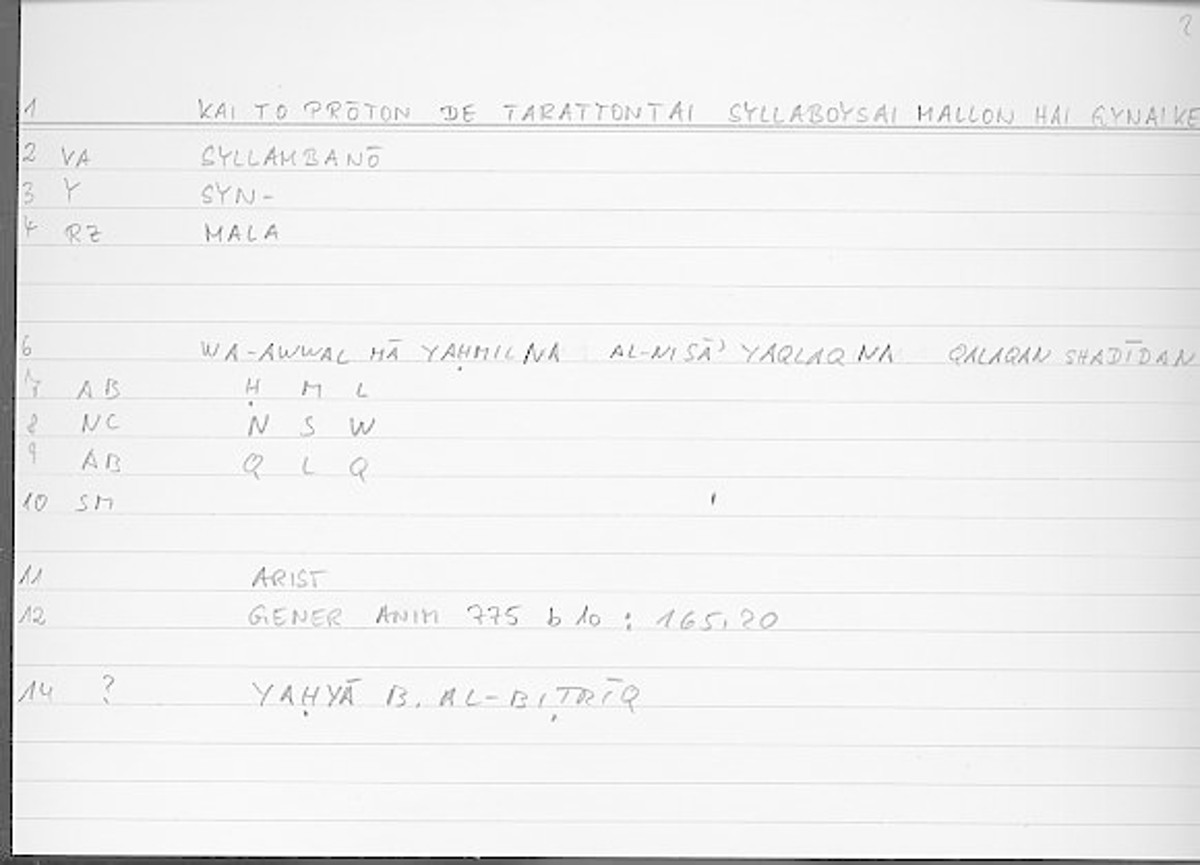 2
1 KAI TO PRŌTON DE TARATTONTAI SYLLABOYSAI MALLON HAI GYNAIKE
2 VA SYLLAMBANŌ
3 Y SYN-
4 RZ MALA
6 WA-AWWAL MĀ YAḤMILNA AL-NISĀʾ YAQLAQNA QALAQAN SHADĪDAN
7 AB Ḥ M L
8 NC N S W
9 AB Q L Q
10 SM
11 ARIST
12 GENER ANIM 775 b 10 : 165,20
14 ? YAḤYĀ B. AL-BIṬRĪQ